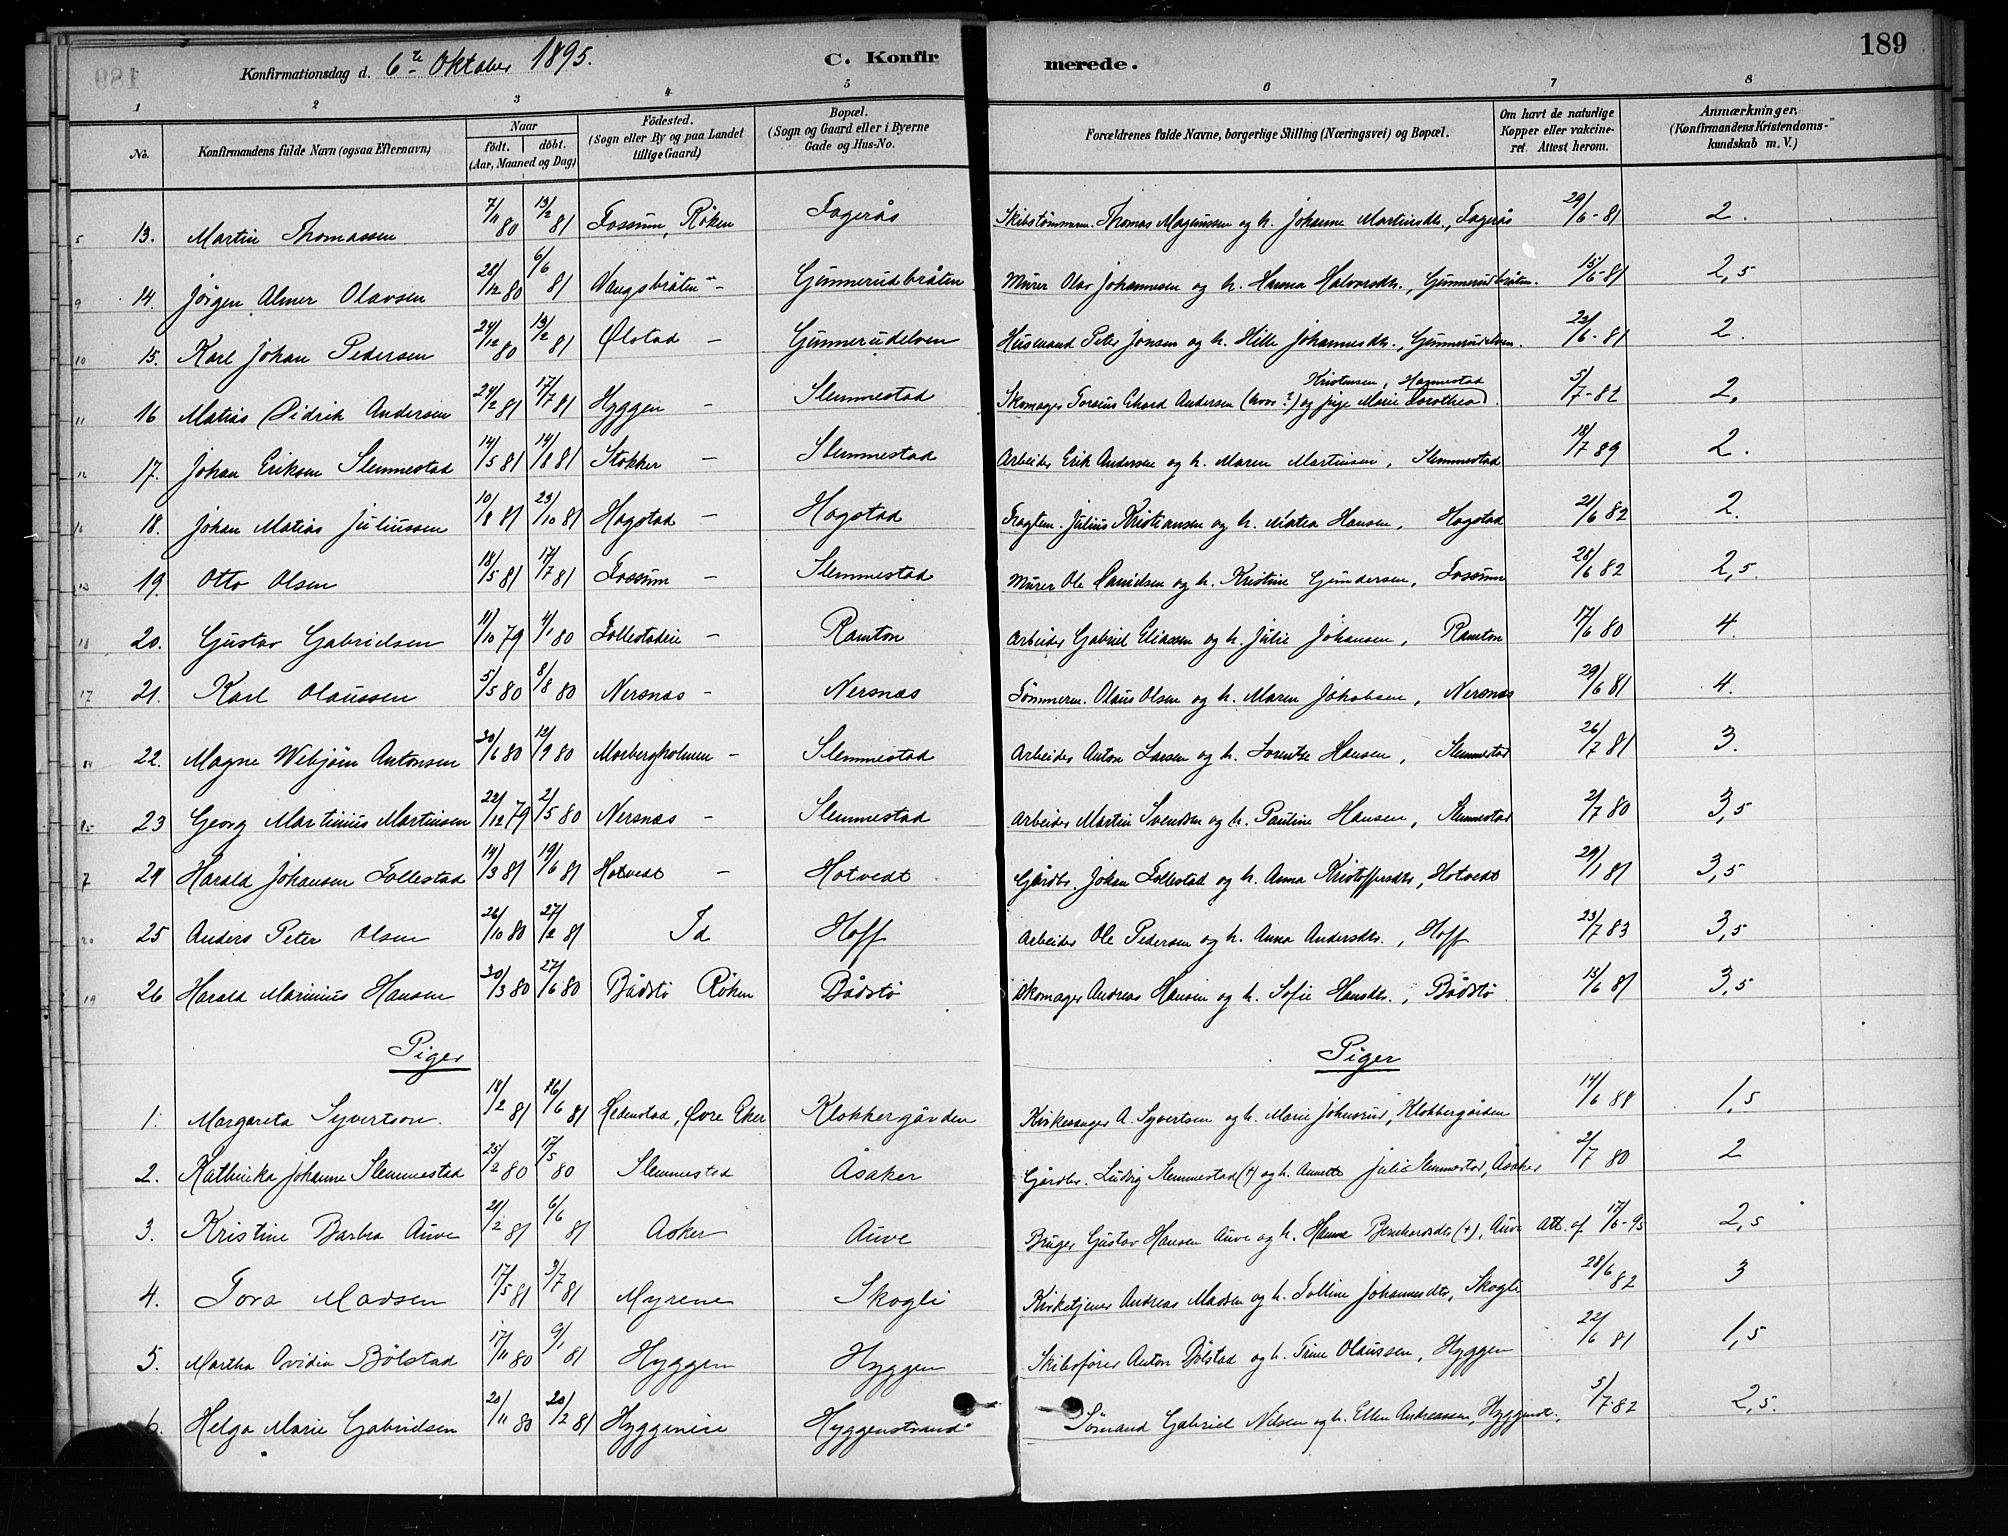 189
Konfirmationsdag d. 6te Oktober 1895. C. Konfirmerede.
1 2 3 4 5 6 7 8
No. Konfirmandens fulde Navn (ogsaa Efternavn) Naar født. døbt. (Aar, Maaned og Dag) Fødested. (Sogn eller By og paa Landet tillige Gaard) Bopæl. (Sogn og Gaard eller i Byerne Gade og Hus-No. Forældrenes fulde Navne, borgerlige Stilling (Næringsvei) og Bopæl. Om havt de naturlige Kopper eller vakcineret. Attest herom. Anmærkninger, (Konfirmandens Kristendomskundskab m. V.)
5 13. Martin Thomassen 7/11 80 13/2 81 Fossum, Røken Fagerås Skibstømmerm. Thomas Magnussen og h. Johanne Martinsdtr., Fagerås 29/6-81 2.
9 14. Jørgen Almer Olavsen 28/12 80 6/6 81 Vangsbråten -"- Gunnerudbråten Murer Olav Johannesen og h. Hanna Halvorsdtr., Gunnerudbråten. 15/6-81 2,5
10 15. Karl Johan Pedersen 24/12 80 13/2 81 Ølstad - Gunnerudelven Husmand Peter Jonsen og h. Hille Johannesdtr., Gunnerudelven. 22/6-81 2.
11 16 Matias Didrik Andersen 24/2 81 17/7 81 Hyggen - Slemmestad Skomager Torsius Edvard Andersen (hvor?) og pige Marie Dorothea Kristensen, Hagnestad 5/7-82 2,
12 17. Johan Eriksen Slemmestad 14/5 81 14/8 81 Stokker - Slemmestad Arbeider Erik Andersen og h. Maren Martinsen, Slemmestad 18/7 89 2.
16 18. Johan Matias Juliussen 10/8 81 23/10 81 Hagstad - Hagstad Fragtem. Julius Kristiansen og h. Matea Hansen, Hagstad 21/6 82 2.
13 19. Otto Olsen 18/5 81 17/7 81 Fossum - Slemmestad Murer Ole Danielsen og h. Kristine Gundersen, Fossum 28/6 82 2,5.
18 20. Gustav Gabrielsen 11/10 79 4/1 80 Follestadeie - Ramton Arbeider Gabriel Eliassen og h. Julie Johansen, Ramton 17/6 80 4.
17 21. Karl Olaussen 5/5 80 8/8 80 Nersnæs - Nersnæs Tømmerm. Olaus Olsen og h. Maren Jakobsen, Nersnæs 29/6 81 4.
14 22. Magne Webjørn Antonsen 30/6 80 12/9 80 Morbergholmen - Slemmestad Arbeider Anton Larsen og h. Lorentze Hansen, Slemmestad 26/7 81 3.
15 23 Georg Martinius Martinsen 22/12 79 2/5 80 Nersnæs - Slemmestad Arbeider Martin Svendsen og h. Pauline Hansen, Slemmestad 2/7 80 3,5
7 24 Harald Johansen Follestad 14/3 81 19/6 81 Hotvedt - Hotvedt Gårdbr. Johan Follestad og h. Anna Kristoffersdtr., Hotvedt 29/1 81 3,5
20 25 Anders Peter Olsen 26/10 80 27/2 81 Id Hoff Arbeider Ole Pedersen og h. Anna Andersdtr., Hoff 23/7 83 3,5
19 26 Harald Marinius Hansen 30/3 80 27/6 80 Bådstø Røken Bådstø Skomager Andreas Hansen og h. Sofie Hansdtr., Bådstø 15/6 81 3,5
Piger Piger
1. Margareta Syvertsen. 18/2 81 26/6 81 Hedenstad, Øvre Eker Klokkergården Kirkesanger A. Syvertsen og h. Marie Johnsrud, Klokkergården 14/6 88 1,5
2. Kathinka Johanne Slemmestad 25/2 80 17/5 80 Slemmestad Åsaker Gårdbr. Ludvig Slemmestad (†) og h. Annette Julie Slemmestad, Åsaker 2/7 80 2
3. Kristine Barbra Auve 21/2 81 6/6 81 Asker Auve Bruger Gustav Hansen Auve og h. Hanna Bernhardsdtr (†), Auve Att. af 17/6-95 2,5
4. Tora Madsen 17/5 81 3/7 81 Myrene Skogli Kirketjener Andreas Madsen og h. Tolline Johannesdtr, Skogli 28/6 82 3
5. Martha Ovidia Bølstad 17/11 80 9/1 81 Hyggen Hyggen Skibsfører Anton Bølstad og h. Trine Olaussen, Hyggen 22/6 81 1,5
6. Helga Marie Gabrielsen 20/11 80 20/2 81 Hyggeneie Hyggenstrand Sømand Gabriel Nilsen og h. Ellen Andreassen, Hyggenst., 5/7-82 2,5.